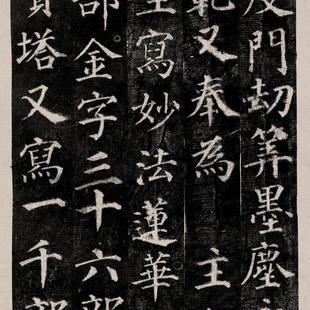 門劫筭墨塵
範又奉為 主
寫妙法蓮華
部金字三十六部
塔又寫一千部